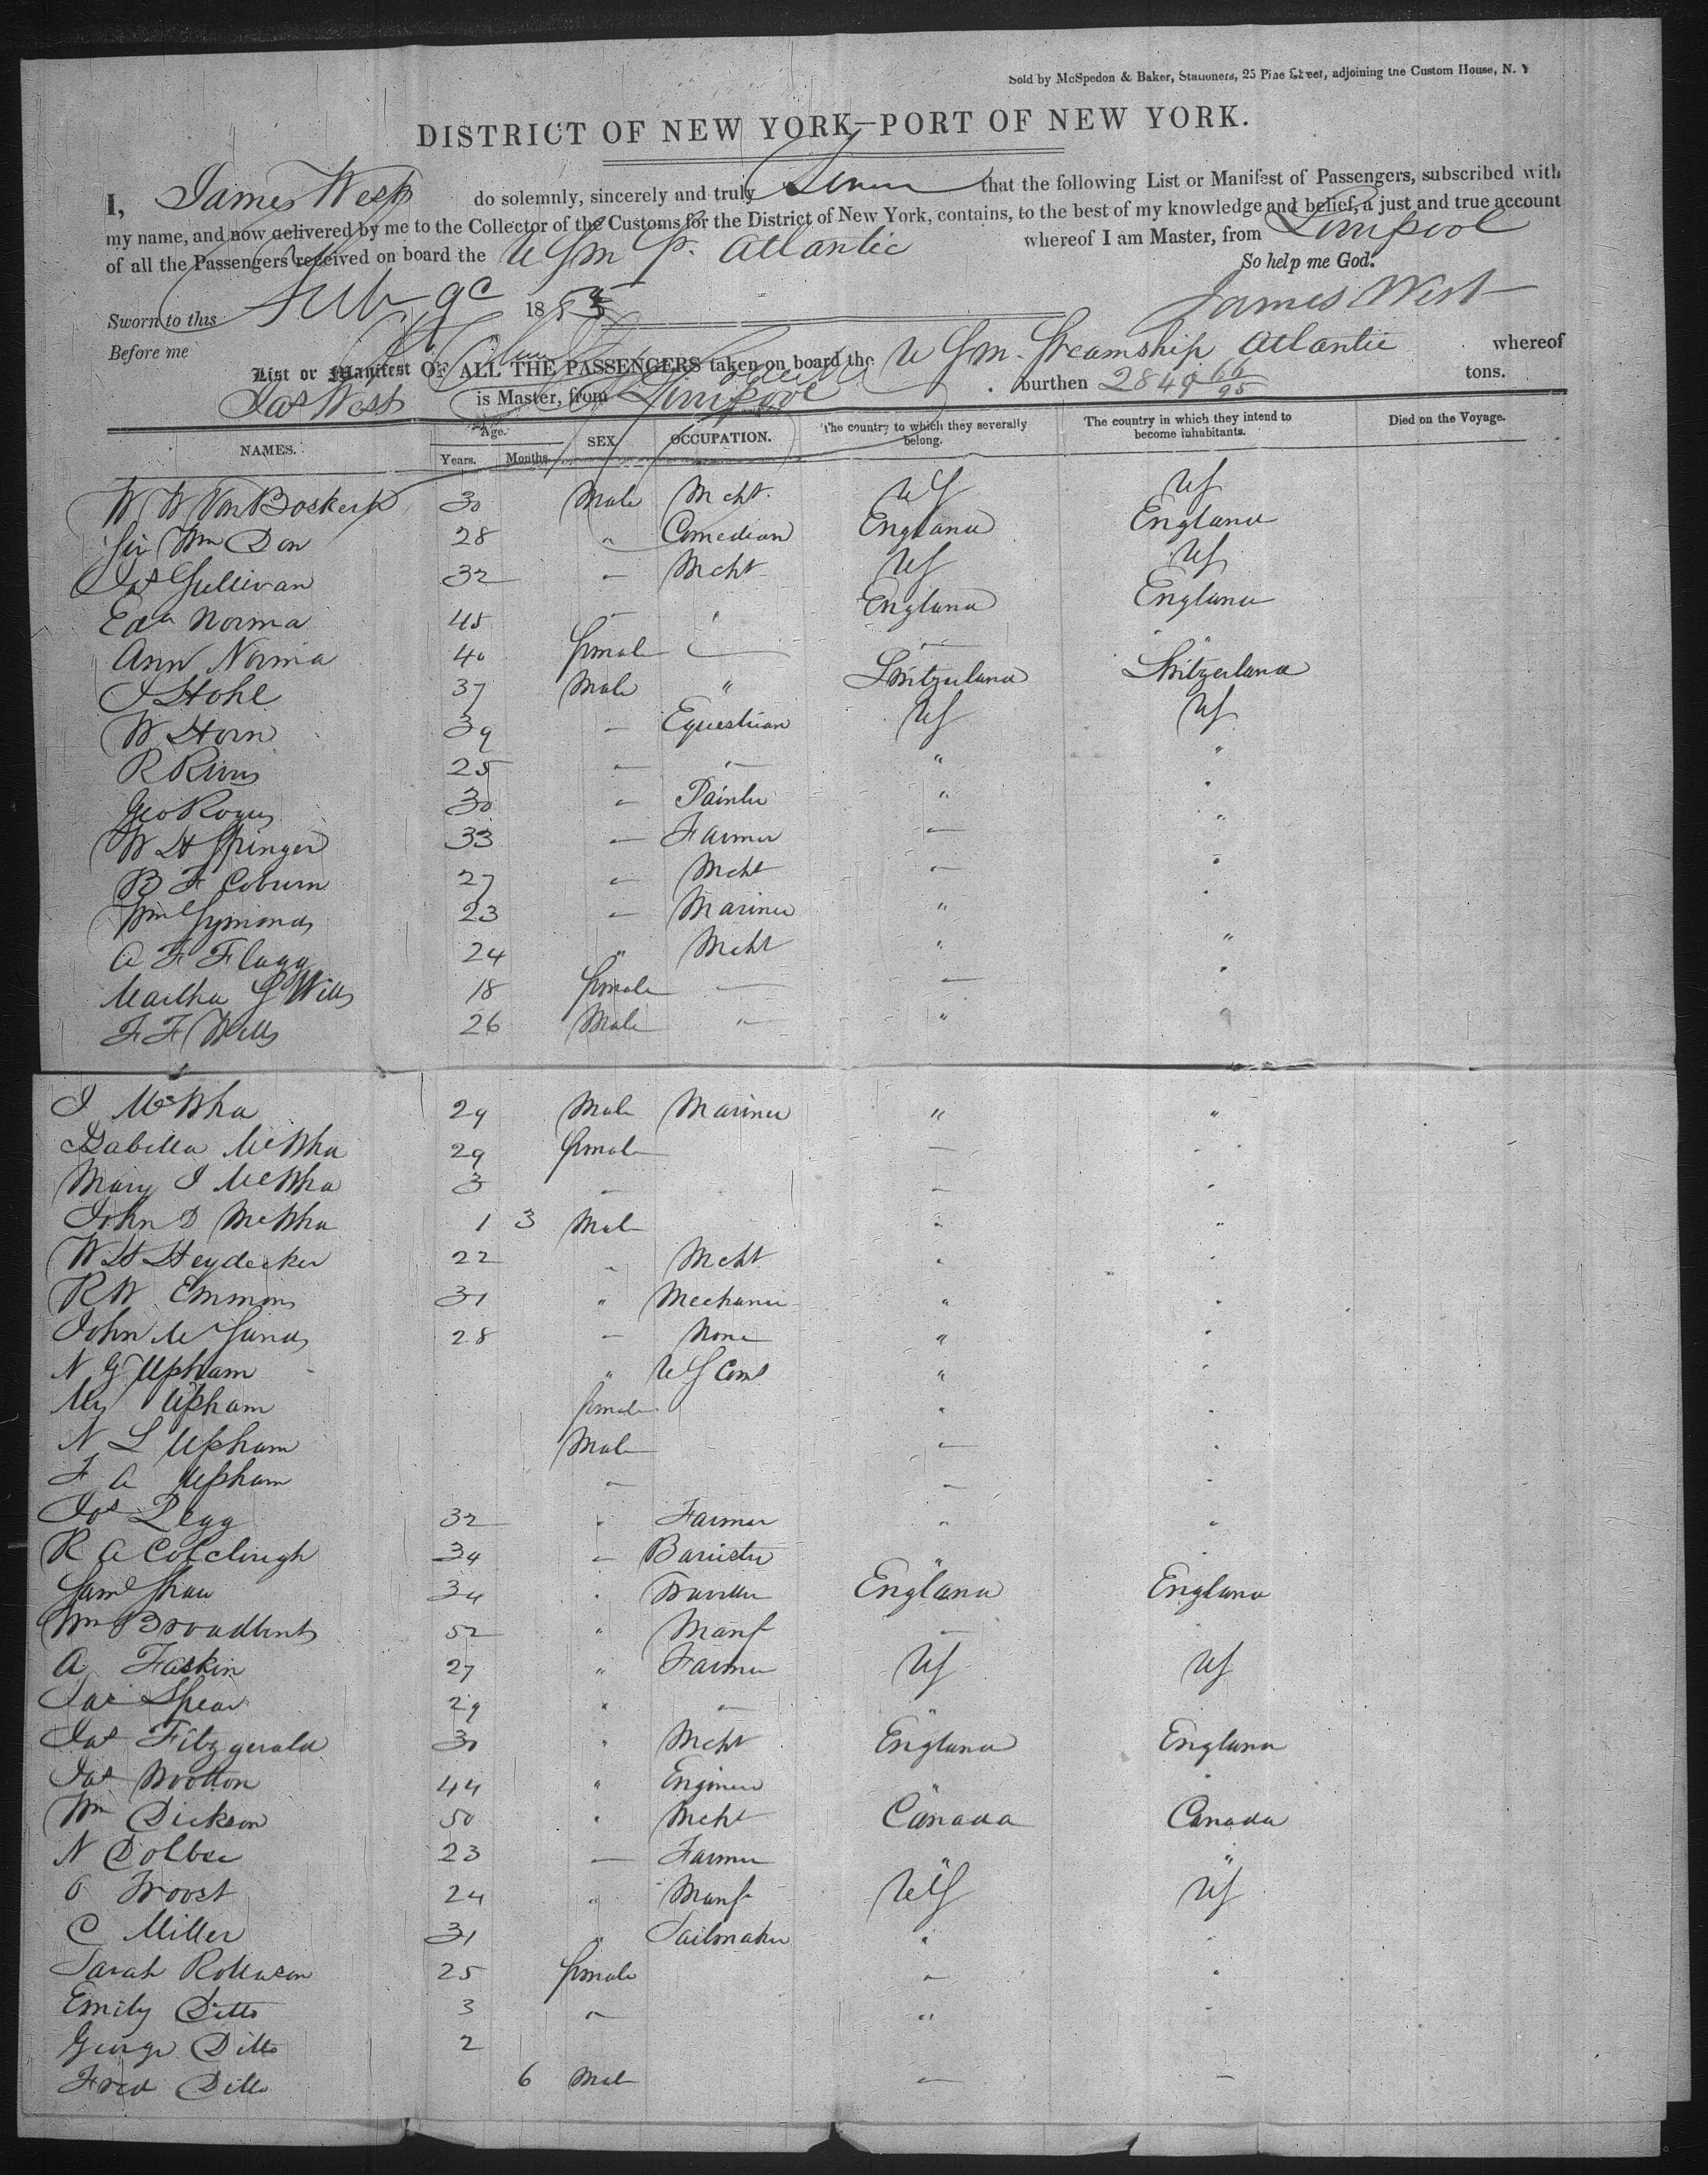 Sold by McSpedon & Baker, Stationers, 25 Pine Street, adjoining the Custom House, N. Y
DISTRICT OF NEW YORK—PORT OF NEW YORK.
I, James West do solemnly, sincerely and truly Swear that the following List or Manifest of Passengers, subscribed with
my name, and now delivered by me to the Collector of the Customs for the District of New York, contains, to the best of my knowledge and belief, a just and true account
of all the Passengers received on board the USM S. Atlantic whereof I am Master, from Liverpool
So help me God.
Sworn to this 1853 James West
Before me
List or Manifest OF ALL THE PASSENGERS taken on board the USM. Steamship Atlantic whereof
Jas West is Master, from Liverpool burthen 2849 66/95 tons.
NAMES. Age. Years. Months. SEX OCCUPATION. The country to which they severally belong. The country in which they intend to become inhabitants. Died on the Voyage.
W W Van Boskerk 30 Male Mcht. US US
Sir Wm Don 28 " Comedian England England
Jas Sullivan 32 " Mcht US US
Edd Norma 45 " " England England
Ann Norma 40 female — " "
J Stohl 37 Male " Switzerland Switzerland
W Horn 39 — Equestrian US US
R Rivers 25 — — " "
Geo Rogers 30 " Painter " "
W H Springer 33 — Farmer — "
B F Coburn 27 " Mcht — "
Wm Symonds 23 — Mariner " "
A F Flagg 24 " Mcht " "
Martha S Wills 18 female — — "
F F Wills 26 Male " " "
J McWha 29 Male Mariner " "
Isabella McWha 29 female — "
Mary J McWha 3 — — "
John D McWha 1 3 Male " "
W H Heydecker 22 " Mcht " "
R W Emmons 31 " Mechanic " "
John McSands 28 — None " "
N G Upham " US Coms " "
Mrs Upham female " "
N L Upham Male — "
F A Upham — — "
Jos Pegg 32 " Farmer " "
R A Colclough 34 — Barrister " "
Saml Shaw 34 " Traveller England England
Wm Broadbent 52 " Manf — "
A Faskin 27 " Farmer US US
Jas Spear 29 " — "
Jas Fitzgerald 30 " Mcht England England
Jas Wootton 44 " Engineer " "
Wm Dickson 50 " Mcht Canada Canada
N Dolbee 23 — Farmer " "
O Troost 24 " Manf US US
C Miller 31 " Sailmaker " "
Sarah Robinson 25 female — "
Emily Ditto 3 " " "
George Ditto 2
Fred Ditto 6 Male — —